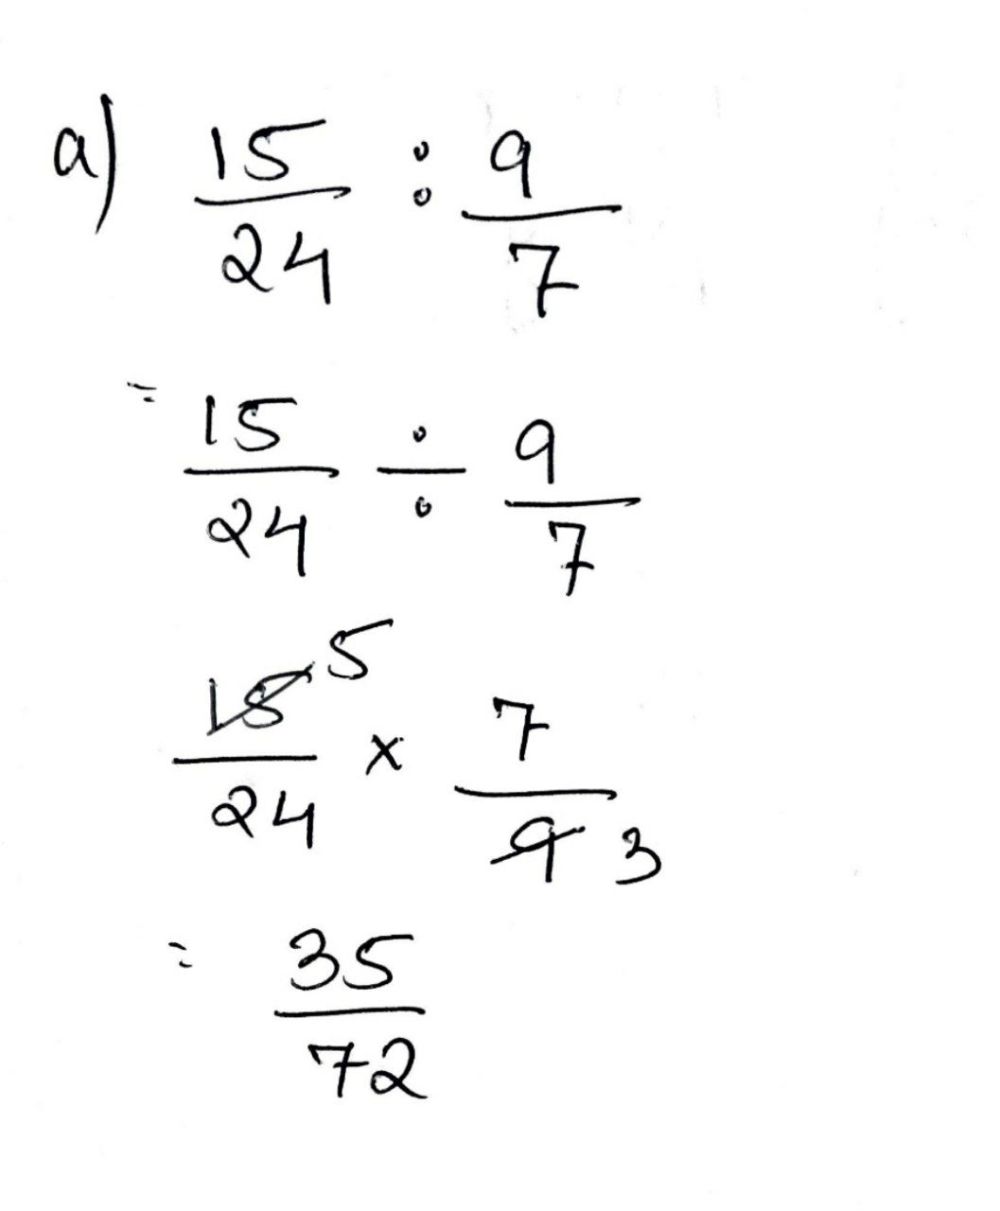 a) 15/24 : 9/7
= 15/24 ÷ 9/7
15/24 5 × 7/9 3
= 35/72